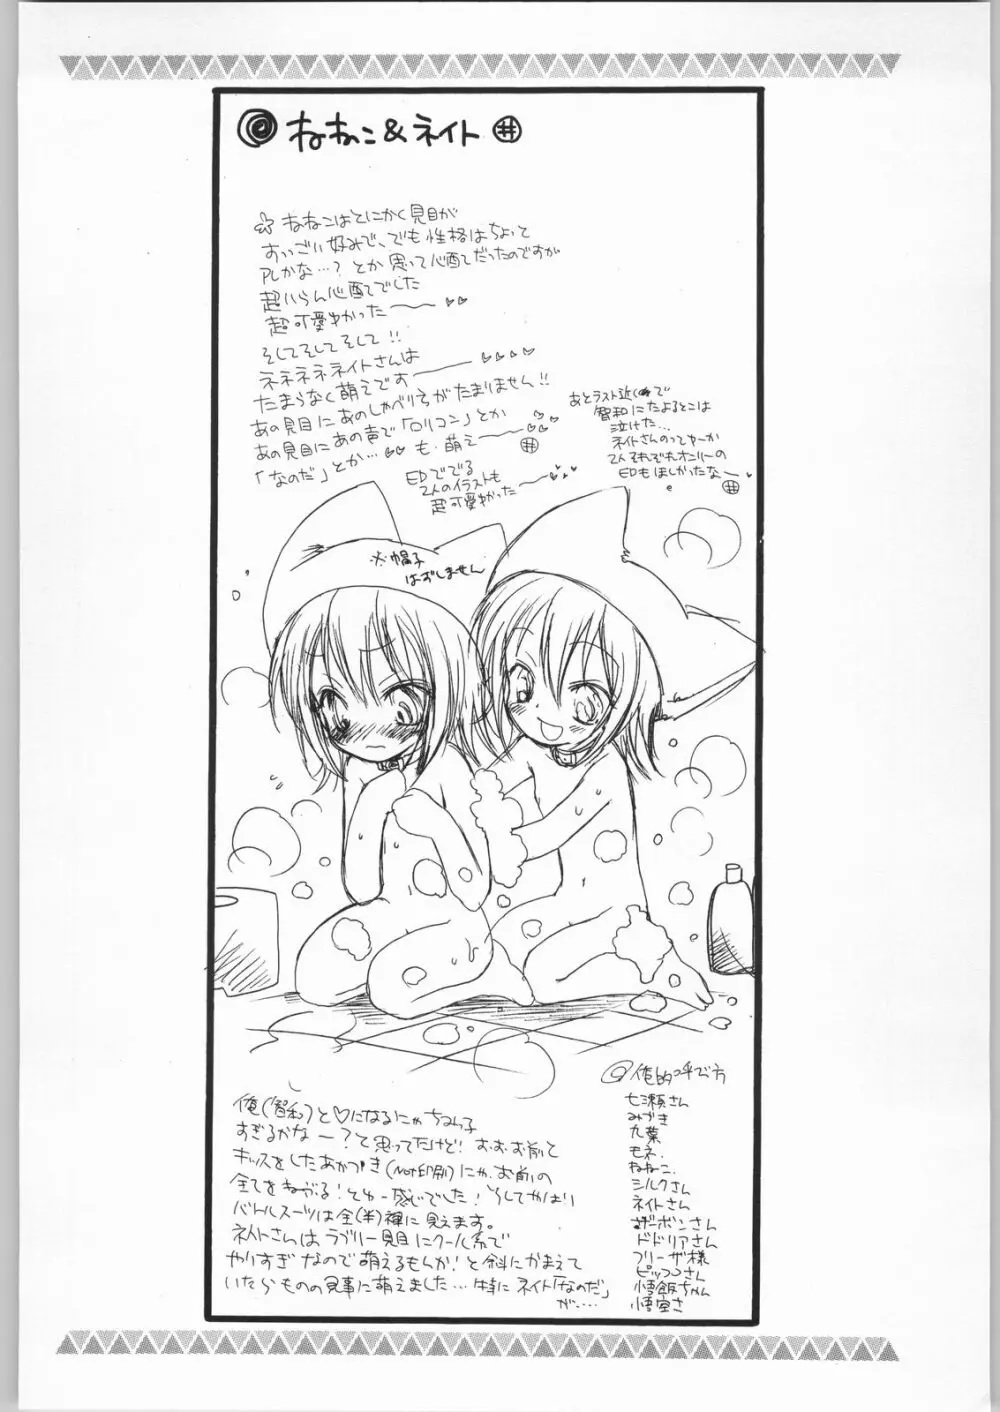 ねねこ&ネイト
ねねこはとにかく見目が
すっごい好みで、でも性格はちょっと
PLかな…?とか思って心配だったのですが
超いらん心配でした
超可愛ゆかった
そしてそしてそして!!
ネネネネネイトさんは
たまらなく萌えです
あの見目にあのしゃべり方がたまりません!!
あの見目にあの声で「ロリコン」とか
「なのだ」とか… も、萌え
EDででる
2人のイラストも
超可愛ゆかった
あとラスト近くで
智和にたよるとこは
泣けた…
ネイトさんのってゆーか
2人それぞれオンリーの
EDもほしかったな
※帽子
はずしません
俺(智和)と♡になるにゃちみっ子
すぎるかなー?て思ってたけど!お、お、お前と
キッスをしたあかつき(Not印刷)にゃ、お前の
全てを る!とゆー感じでした!そしてやはり
バトルスーツは全(半)裸に見えます。
ネイトさんはラブリー見目にクール系で
やりすぎなので萌えるもんか!と斜にかまえて
いたらものの見事に萌えました…特にネイト「なのだ」
が…
俺的呼び方
七瀬さん
みづき
九葉
モネ.
ねねこ.
シルクさん
ネイトさん
ザーボンさん
ドドリアさん
フリーザ様
ピッコさん
悟飯ちゃん
悟空さ